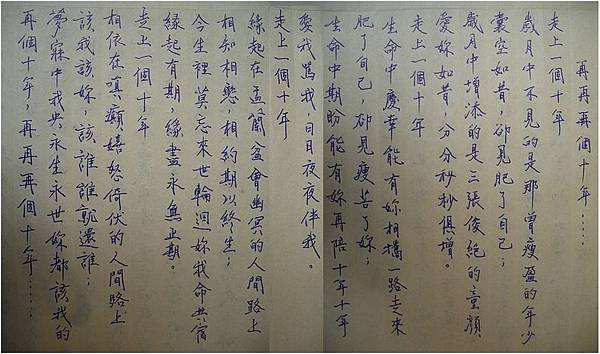 再再再個十年.....
走上一個十年
歲月中不見的是那曾瘦盈的年少
囊空如昔，卻見肥了自己；
歲月中增添的是三張俊絕的童顏
愛妳如昔，分分秒秒俱增。
走上一個十年
生命中慶幸能有妳相攜一路走來
肥了自己，卻見瘦苦了妳；
生命中期盼能有妳再陪十年十年
愛我罵我，日日夜夜伴我。
走上一個十年
緣起在盂蘭盆會幽冥的人間路上
相知相戀，相約期以終生；
今生裡莫忘來世輪迴妳我命共宿
緣起有期，緣盡永無止期。
走上一個十年
相依在嗔癲嬉怒倚伏的人間路上
該我該妳，該誰誰就還誰；
夢寐中我央永生永世妳都該我的
再個十年，再再再個十年.....